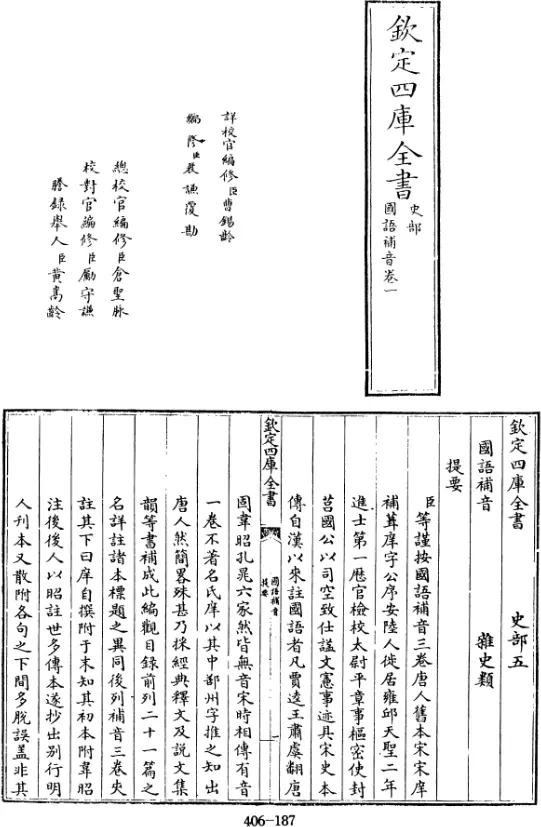 欽定四庫全書
史部
國語補音卷一
詳校官編修臣曹錫齡
編修臣裴謙覆勘
總校官編修臣倉聖脉
校對官編修臣勵守謙
謄錄舉人臣黄嵩齡
欽定四庫全書
史部五
國語補音
雜史類
提要
臣等謹按國語補音三卷唐人舊本宋宋庠
補葺庠字公序安陸人徙居雍邱天聖二年
進士第一厯官檢校太尉平章事樞密使封
莒國公以司空致仕謚文憲事迹具宋史本
傳自漢以來註國語者凡賈逵王肅虞翻唐
固韋昭孔晁六家然皆無音宋時相傳有音
一卷不著名氏庠以其中鄯州字推之知出
唐人然簡畧殊甚乃採經典釋文及說文集
韻等書補成此編觀目錄前列二十一篇之
名詳註諸本標題之異同後列補音三卷夾
註其下曰庠自撰附于末知其初本附韋昭
注後後人以昭註世多傳本遂抄出别行明
人刋本又散附各句之下間多脫誤盖非其
欽定四庫全書
國語補音
提要
一
406-187